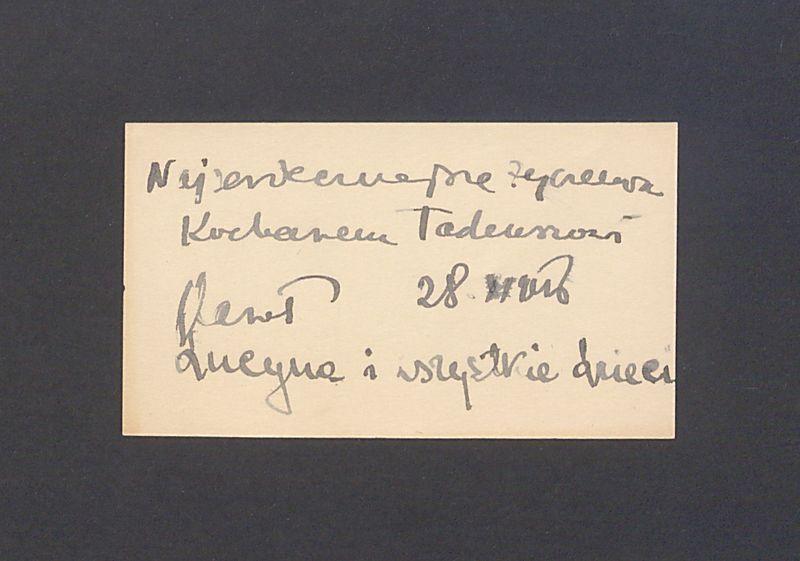 Najserdeczniejsze życzenia
Kochanemu Tadeuszowi
Paweł 28
Lucyna i wszystkie dzieci